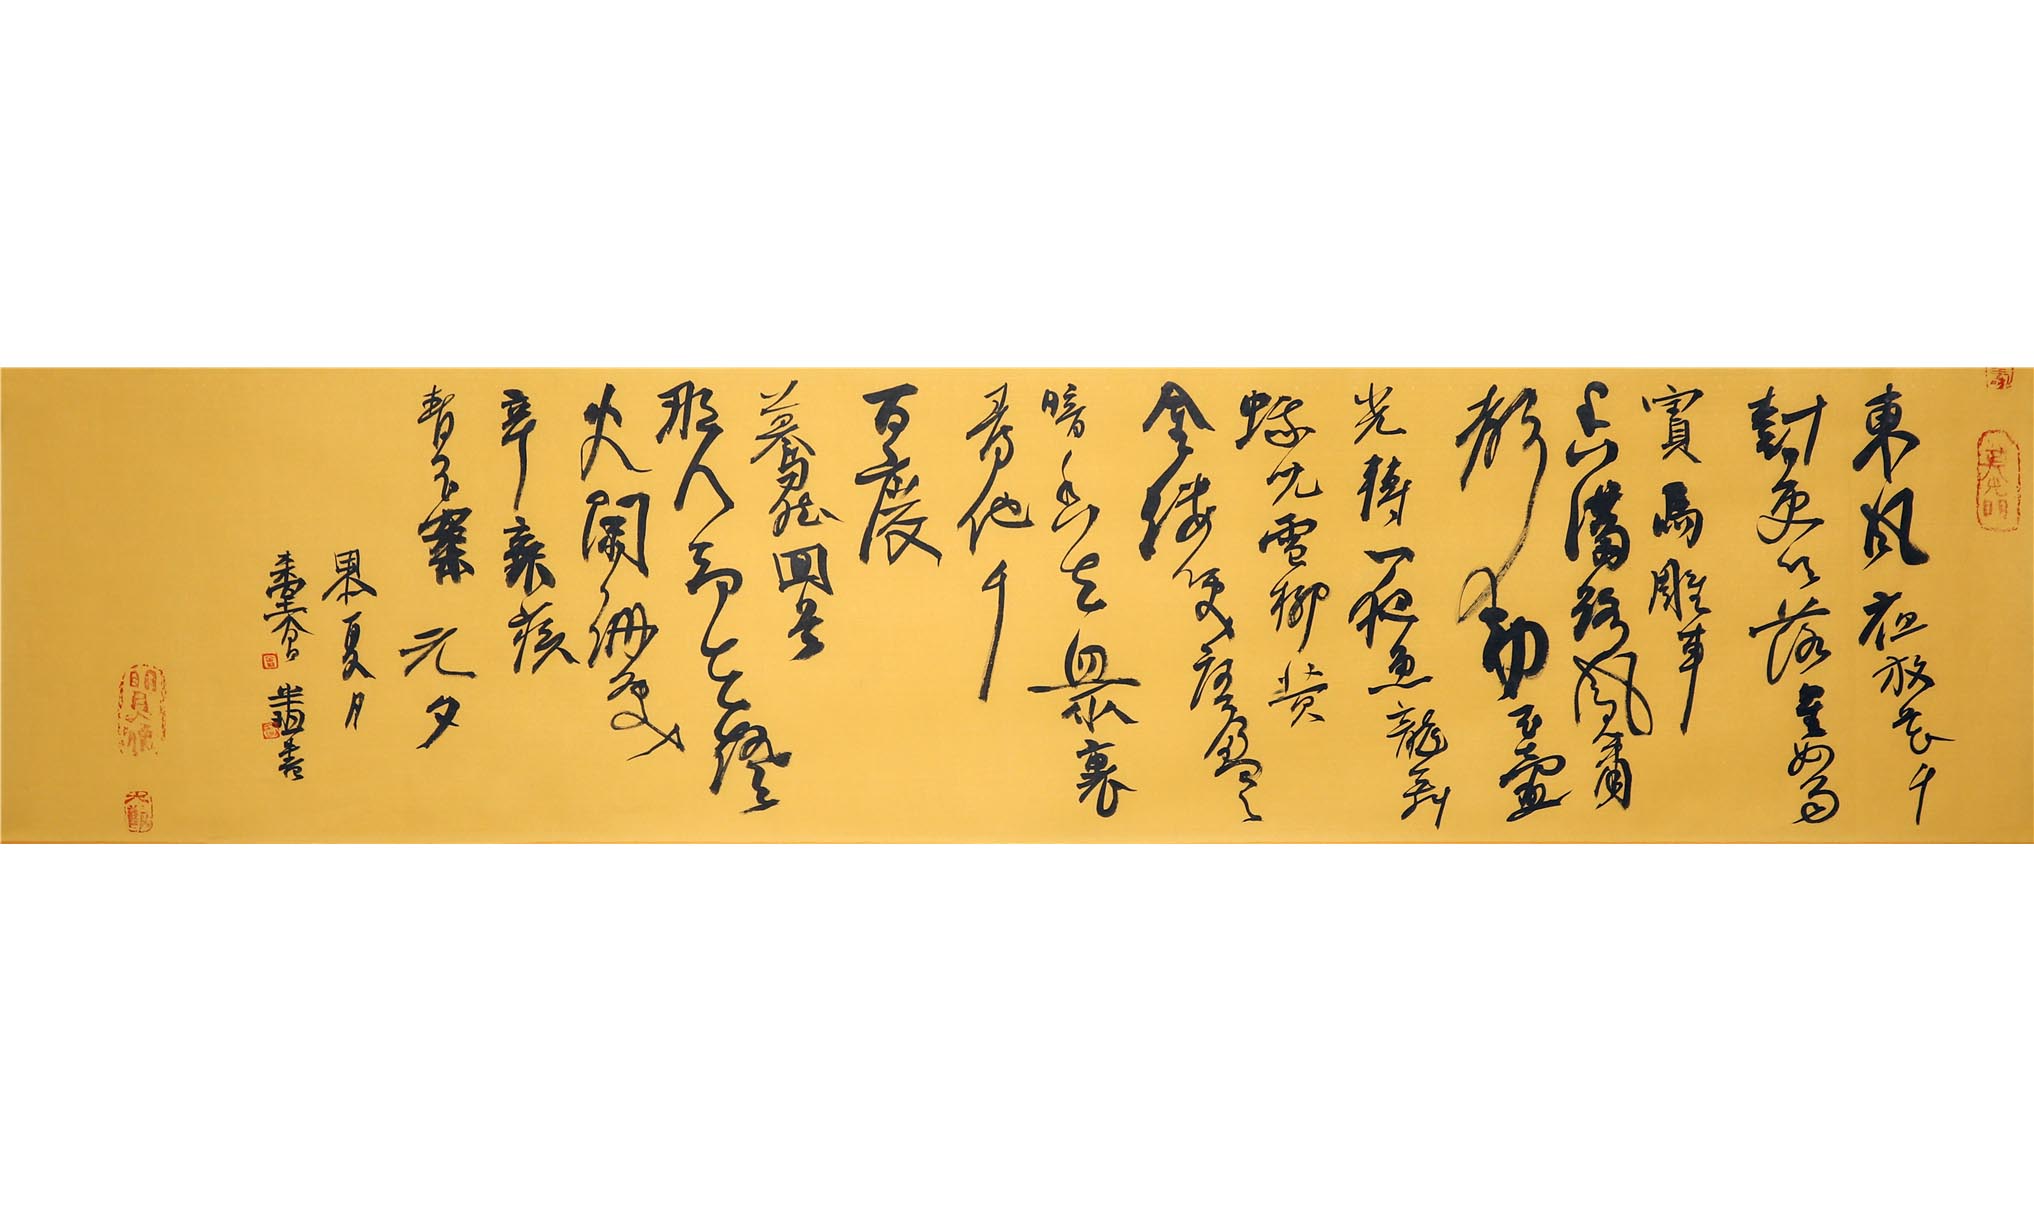 東風夜放花千
樹更吹落星如雨
寶馬雕車
香滿路鳳簫
聲動玉壺
光轉一夜魚龍舞
蛾兒雪柳黄
金縷笑語盈盈
暗香去衆裏
尋他千
百度
驀然回首
那人却在燈
火闌珊處
辛棄疾
青玉案 元夕
夏月
書